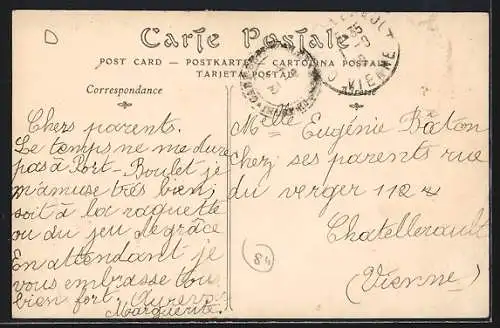 D
Carte Postale
POST CARD — POSTKARTE — CARTOLINA POSTALE
TARJETA POSTAL
Correspondance
Adresse
VIENNE
Chers parents.
Le temps ne me dure
pas à Port-Boulet je
m'amuse très bien,
soit à la raquette
ou du jeu de grâce
En attendant je
vous embrasse tous
bien fort.
Marguerite.
Mlle Eugénie Bâton
chez ses parents rue
du verger 112
Chatellerault
(Vienne)
84